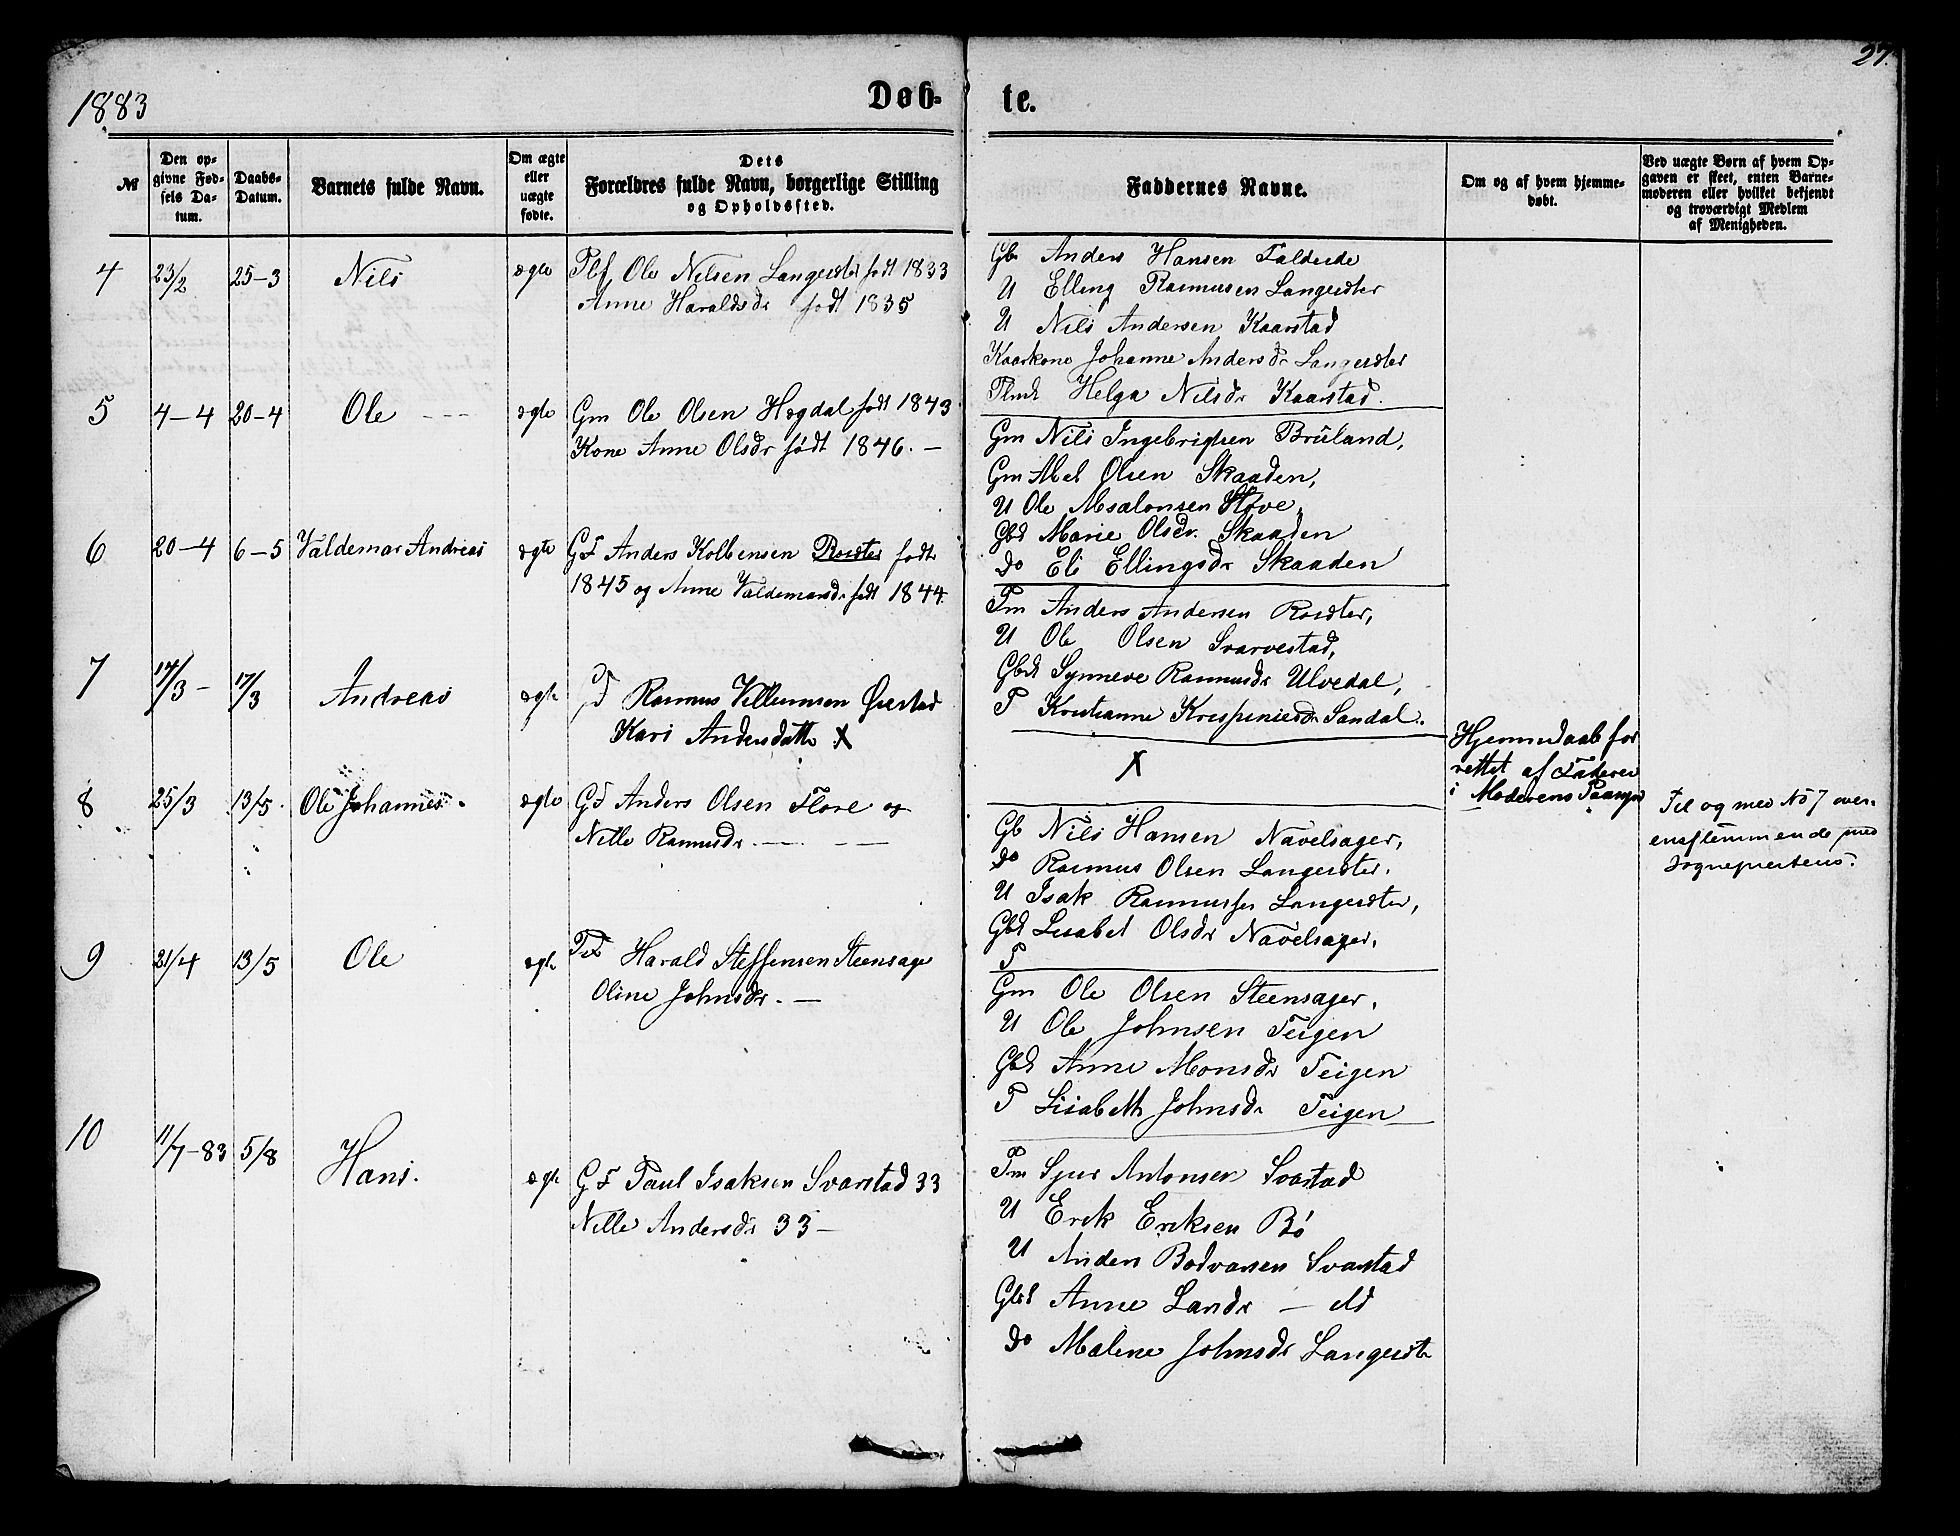 1883
Døb-
te.
27.
№
Den op-
givne Fød-
sels Da-
tum.
Daabs-
Datum.
Barnets fulde Navn.
Om ægte
eller
uægte
fødte.
Dets
Forældres fulde Navn, borgerlige Stilling
og Opholdssted.
Faddernes Navne.
Om og af hvem hjemme-
døbt.
Ved uægte Børn af hvem Op-
gaven er skeet, enten Barne-
moderen eller hvilket bekjendt
og troværdigt Medlem
af Menigheden.
4 23/2 25-3 Nils ægte Plf Ole Nilsen Langesæter født 1833
Anne Haraldsdr født 1835
Gbr Anders Hansen
U Elling Rasmussen Langesæter
U Nils Andersen Kaarstad
Kaarkone Johanne Andersdr Langesæter
Helga Nilsdr Kaarstad.
5 4-4 20-4 Ole ægte Gm Ole Olsen Høgdal født 1843
Kone Anne Olsdr født 1846. —
Gm Nils Ingebrigtsen Bruland,
Gm Abel Olsen Skaaden,
U Ole Absalonsen
Gbd Marie Olsdr. Skaaden
do Eli Ellingsdr Skaaden
6 20-4 6-5 Valdemar Andreas ægte GF Anders Kolbensen født
1845 og Anne Valdemarsdr født 1844.
Pm Anders Andersen
U Ole Olsen Svarvestad,
Gbd Synneve Rasmusdr Ulvedal,
P Kristianne Sandal.
7 14/3 - 17/3 Andreas ægte Rasmus Villumsen
Kari Andersdatter X
X
Hjemmedaab for
rettet af Faderen
i Moderens Paasyn
8 25/3 13/5. Ole Johannes. ægte GF Anders Olsen Flore og
Nille Rasmusdr. — —
Gb Nils Hansen Navelsager,
do Rasmus Olsen Langesæter.
U Isak Rasmussen Langesæter,
Gbd Lisabet Olsdr Navelsager.
Til og med No 7 over-
ensstemmende med
Sognepræstens.
9 21/4 13/5 Ole ægte Harald Steffensen Steensager
Oline Johnsdr. —
Gm Ole Olsen Steensager,
U Ole Johnsen Teigen
Gbd Anne Monsdr Teigen
P Lisabeth Johnsdr Teigen
10 11/7-83 5/8 Hans. ægte GF Paul Isaksen Svarstad 33
Nille Andersdr 33 —
Pm Sjur Antonsen Svarstad
U Erik Eriksen Bø
U Anders Bodvarsen Svarstad
Gbd Anne Larsdr —
do Malene Johnsdr Langesæter